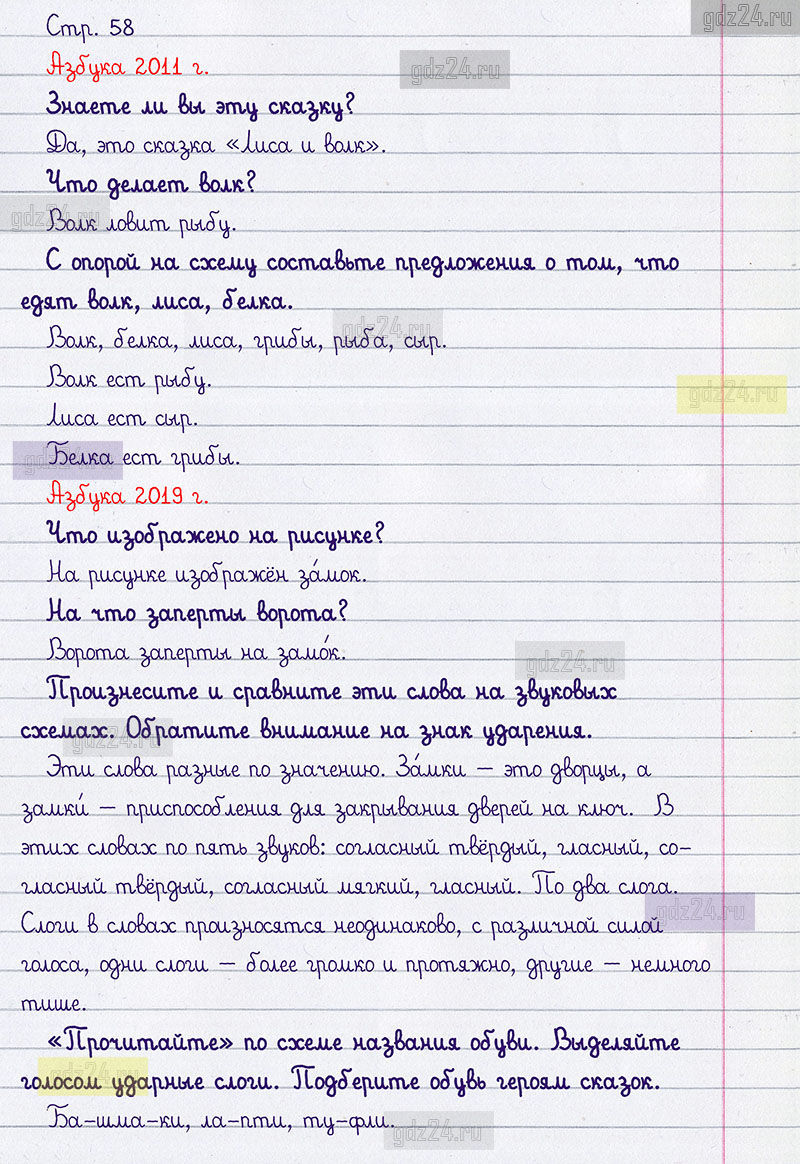 Стр. 58
gdz24.ru
Азбука 2011 г.
gdz24.ru
Знаете ли вы эту сказку?
Да, это сказка «Лиса и волк».
Что делает волк?
gdz24.ru
Волк ловит рыбу.
С опорой на схему составьте предложения о том, что
едят волк, лиса, белка.
gdz24.ru
Волк, белка, лиса, грибы, рыба, сыр.
Волк ест рыбу.
gdz24.ru
Лиса ест сыр.
Белка ест грибы.
gdz24.ru
Азбука 2019 г.
Что изображено на рисунке?
На рисунке изображён за́мок.
На что заперты ворота?
Ворота заперты на замо́к.
gdz24.ru
Произнесите и сравните эти слова на звуковых
схемах. Обратите внимание на знак ударения.
gdz24.ru
Эти слова разные по значению. За́мки – это дворцы, а
замки́ – приспособления для закрывания дверей на ключ. В
этих словах по пять звуков: согласный твёрдый, гласный, со-
гласный твёрдый, согласный мягкий, гласный. По два слога.
gdz24.ru
Слоги в словах произносятся неодинаково, с различной силой
голоса, одни слоги – более громко и протяжно, другие – немного
тише.
«Прочитайте» по схеме названия обуви. Выделяйте
gdz24.ru
голосом ударные слоги. Подберите обувь героям сказок.
Ба-шма-ки, ла-пти, ту-фли.
gdz24.ru